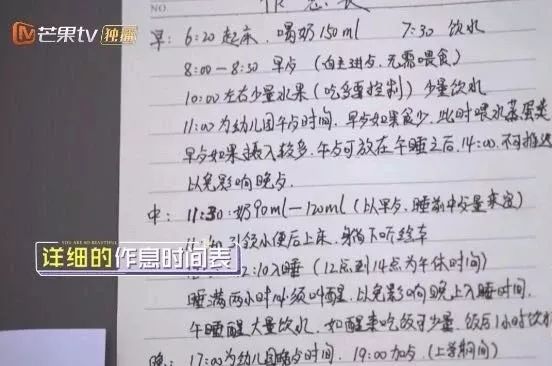 芒果tv 独播
NO.
作息表
早: 6:20 起床、喝奶150ml 7:30 饮水
8:00-8:30 早点 (自主进点,无需喂食)
10:00左右少量水果(吃多要控制) 少量饮水
11:00为幼儿园午点时间,早点如果食少,此时喂水蒸蛋类
早点如果摄入较多,午点可放在午睡之后,14:00,不可推迟
以免影响晚点.
中: 11:30:奶90ml-120ml (以早点、睡前中点量来定)
引领小便后上床,躺下听绘本
12:10入睡 (12点到14点为午休时间)
睡满两小时必须叫醒,以免影响晚上入睡时间.
午睡醒大量饮水,如醒来吃饭可少量,饭后1小时饮水
晚: 17:00为幼儿园晚点时间, 19:00加点,(上学期间)
YOU ARE SO BEAUTIFUL
详细的作息时间表